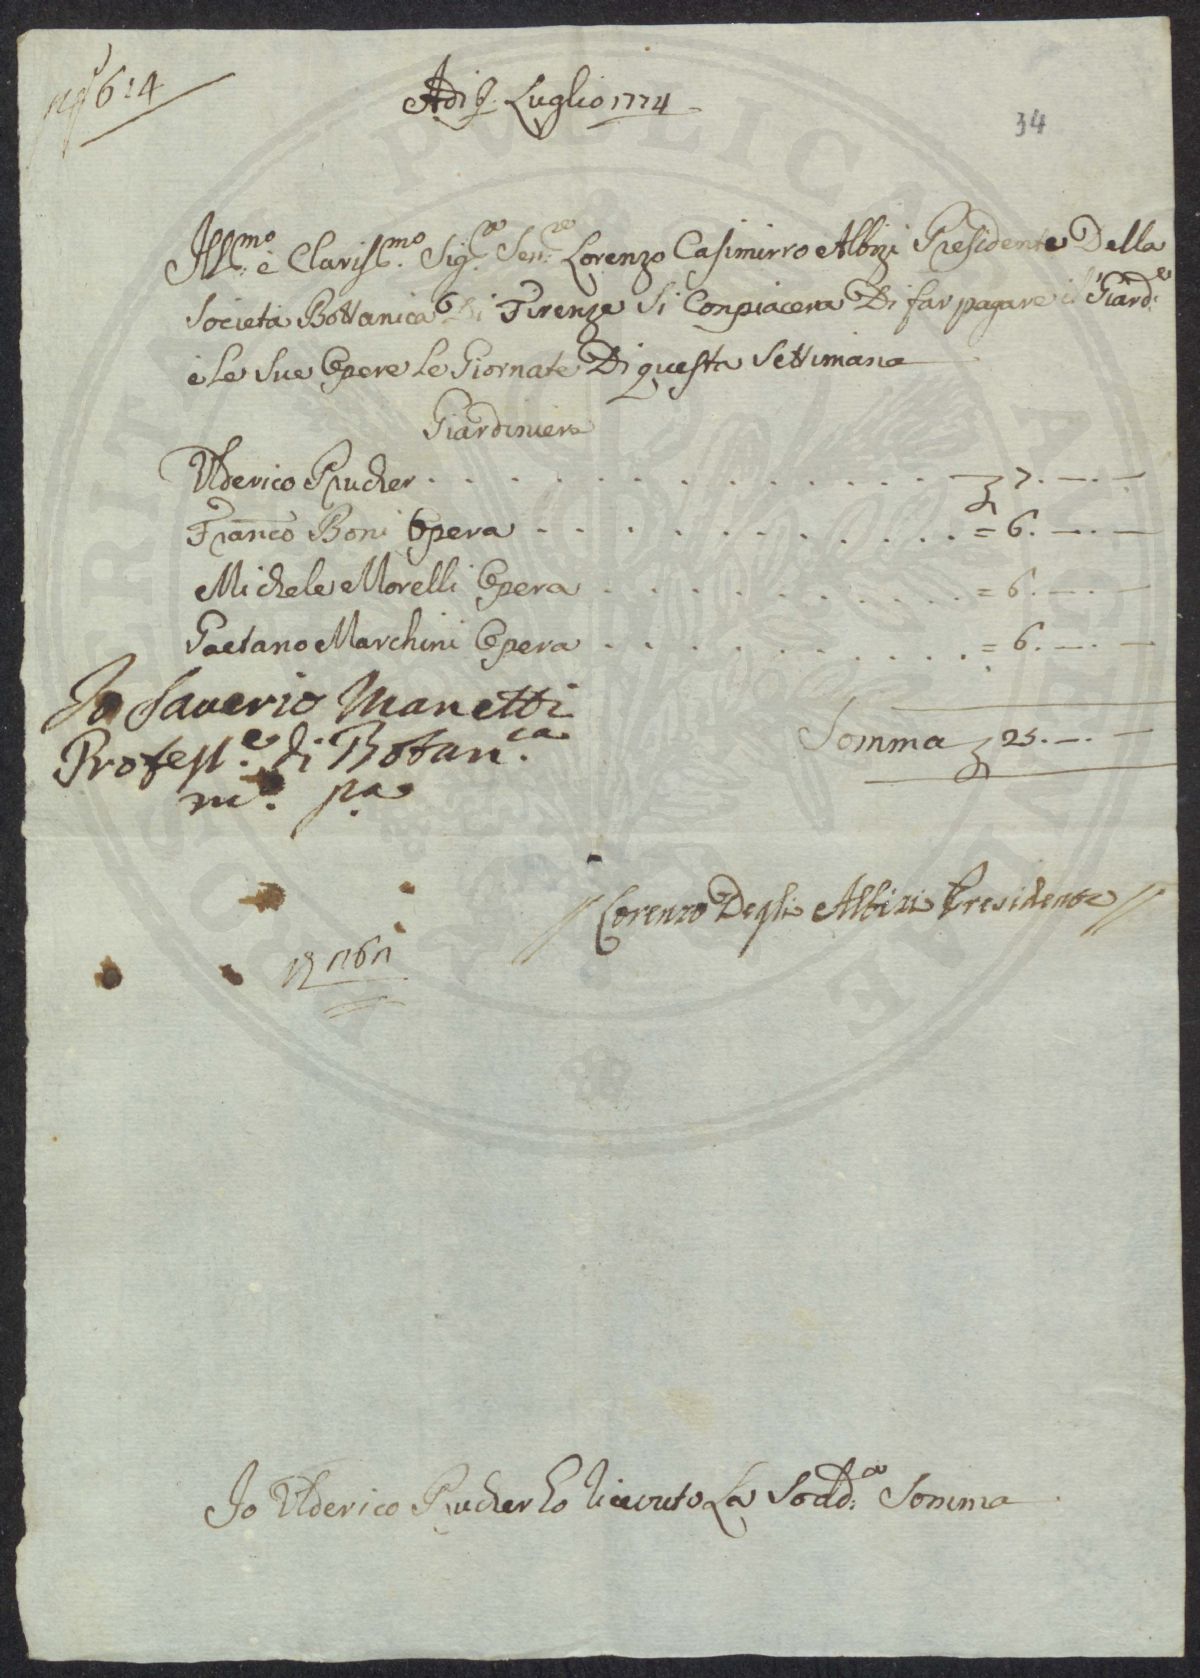 614
Adi 9. Luglio 1774
34
Ill.mo e Clariss.mo Sig.re Sen.re Lorenzo Casimirro Albizi Presidente Della
Società Bottanica Di Firenze Si Conpiacera Di far pagare il Giard.e
e Le Sue Opere Le Giornate Di questa Settimana
Giardiniere
Ulderico Prucher . . . . . . . . . . . . . . . . 7. —. —
Franco Boni Opera . . . . . . . . . . . = 6. —. —
Michele Morelli Opera . . . . . . . . . . = 6. —. —
Gaetano Marchini Opera . . . . . . . . . . = 6. —. —
Io Saverio Manetti
Somma 25. —. —
Profess.e di Botan.ca
m.o pa
// Lorenzo Degli Albizi Presidente //
Io Ulderico Prucher ho Riceuuto La Sodd.a Somma